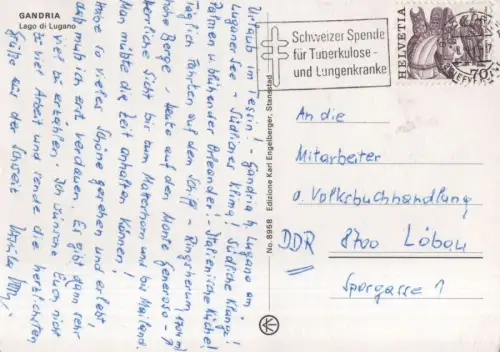 GANDRIA
Lago di Lugano
Urlaub im Tessin! - Gandria b. Lugano am
Luganer See - Südliches Klima! Südliche Klänge!
Palmen u. blühender Oleander! - Italienische Küche!
Täglich Fahrten auf dem Schiff - Ringsherum
hohe Berge - heute auf den Monte Generoso - 1704 m!
Herrliche Sicht bis zum Matterhorn und bis Mailand.
Man müßte die Zeit anhalten können!
Habe so vieles Schöne gesehen und erlebt,
daß muß ich erst verdauen. Es gibt dann sehr
viel zu erzählen. Ich wünsche Euch nicht
zu viel Arbeit und sende die herzlichsten
Grüße aus der Schweiz
No. 8958 Edizione Karl Engelberger, Stansstad
Schweizer Spende
für Tuberkulose-
und Lungenkranke
HELVETIA
70
An die
Mitarbeiter
d. Volksbuchhandlung
DDR 8700 Löbau
Sporgasse 1